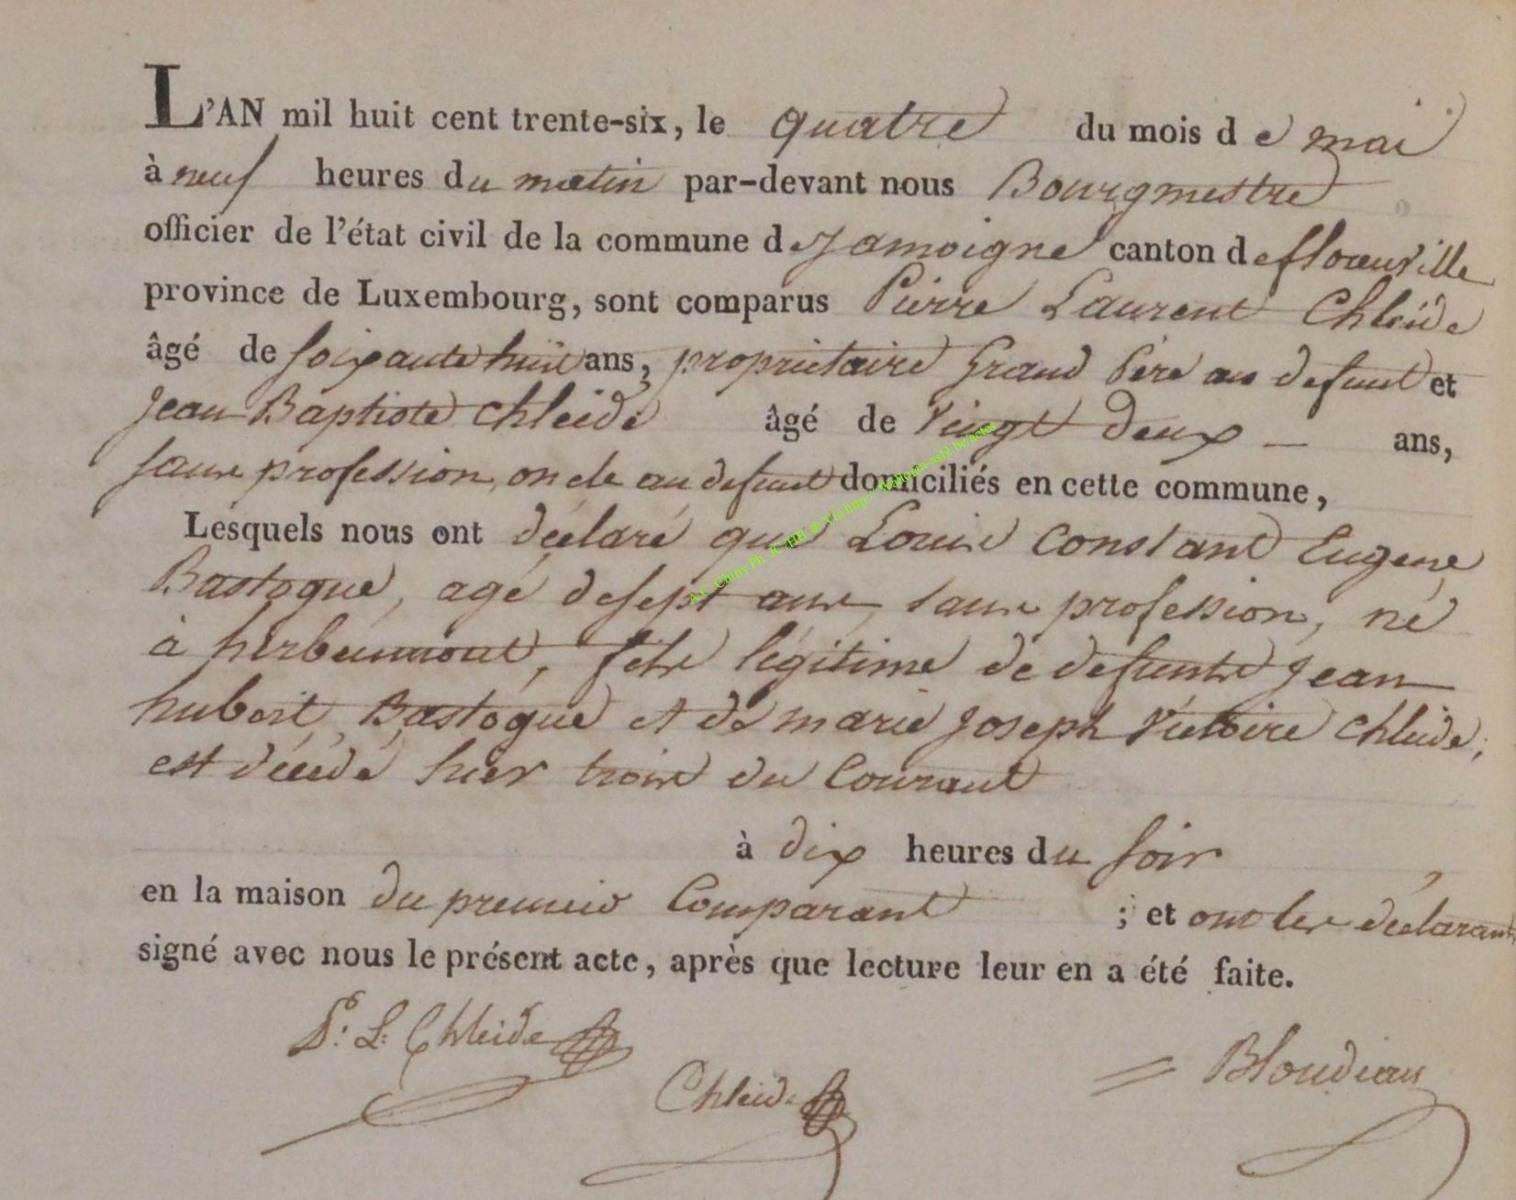 L'AN mil huit cent trente-six, le quatre du mois de mai
à neuf heures du matin par-devant nous Bourgmestre
officier de l'état civil de la commune de Jamoigne canton de florenville
province de Luxembourg, sont comparus Pierre Laurent Chleide
âgé de soixante huit ans, propriétaire Grand Père au defunt et
Jean Baptiste Chleide âgé de Vingt deux — ans,
sans profession, oncle au defunt domiciliés en cette commune,
Lesquels nous ont déclaré que Louis Constant Eugene
Bastogne, agé de sept ans, sans profession, né
à herbeumont, fils légitime de defunts Jean
hubert Bastogne et de marie Joseph Victoire Chleide,
est décédé hier trois du Courant
à dix heures du soir
en la maison du premier Comparant ; et ont les déclarants
signé avec nous le présent acte, après que lecture leur en a été faite.
P: L: Chleide
Chleide